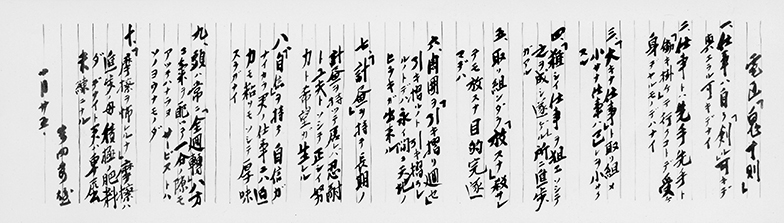 電通「鬼十則」
一、仕事ハ自ラ「創」ル可キデ
与エラル可キデナイ
二、仕事トハ先手先手ト
「働キ掛ケ」テ行クコトデ受
身デヤルモノデナイ
三、「大キナ仕事」ト取リ組メ
小サナ仕事ハ己レヲ小サク
スル
四、「難シイ仕事」ヲ狙エ ソシテ
之ヲ成シ遂ゲル所ニ進歩
ガアル
五、取リ組ンダラ「放スナ」殺サレ
テモ放スナ 目的完遂
マデハ
六、周囲ヲ「引キ摺リ廻セ」
引キ摺ルノト引キ摺ラレ
ルノトデハ永イ間ニ天地ノ
ヒラキガ出来ル
七、「計画」ヲ持テ 長期ノ
計画ヲ持ツテ居レバ忍耐
ト工夫ト ソシテ正シイ努
力ト希望ガ生レル
八、「自信」ヲ持テ 自信ガ
ナイカラ君ノ仕事ニハ迫
力モ粘リモ ソシテ厚味
スラガナイ
九、頭ハ常ニ「全廻轉」八方
ニ気ヲ配ツテ一分ノ隙モ
アツテハナラヌ サービストハ
ソノヨウナモノダ
十、「摩擦ヲ怖レルナ」摩擦ハ
進歩ノ母 積極ノ肥料
ダ デナイト君ハ卑屈
未練ニナル
吉田秀雄